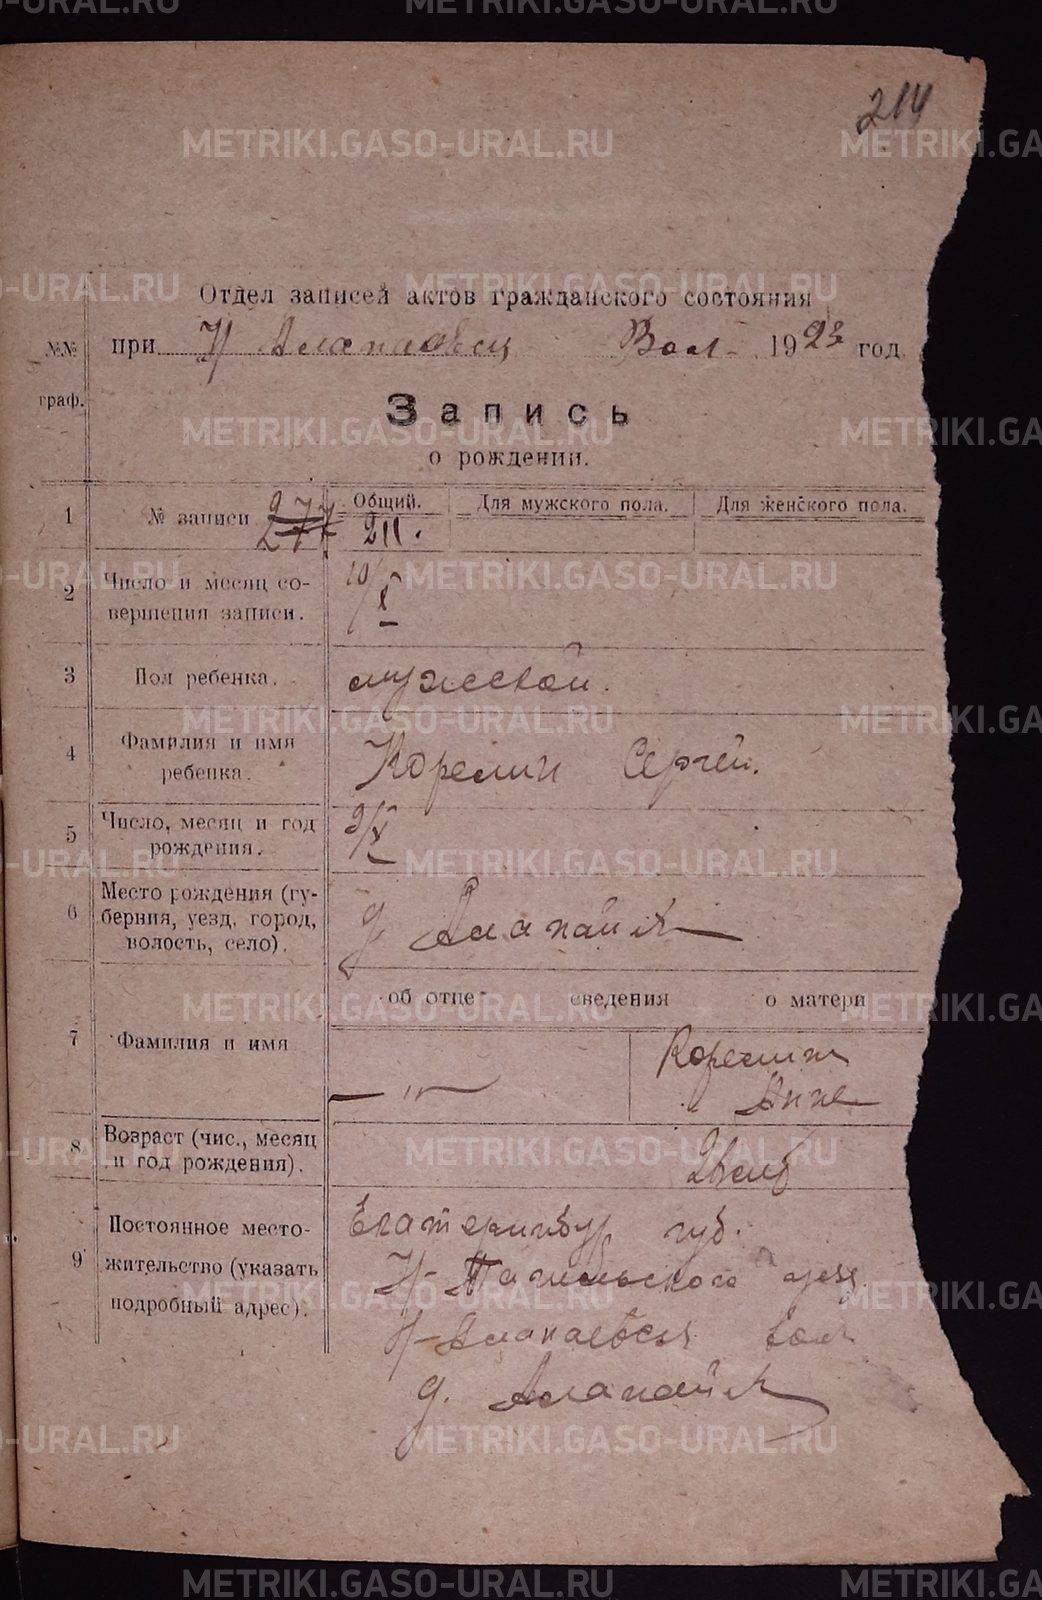 214
Отдел записей актов гражданского состояния
№№ граф.
при Н Алапаевск Вол- 1923 год
Запись
о рождении.
1 № записи 277 Общий. Для мужского пола. Для женского пола.
211.
2 Число и месяц со-
вершения записи.
10/X
3 Пол ребенка. мужской.
4 Фамилия и имя
ребенка.
Корелин Сергей.
5 Число, месяц и год
рождения.
9/X
6 Место рождения (гу-
берния, уезд, город,
волость, село).
д Алапаиха
об отце сведения о матери
7 Фамилия и имя
— „ —
Корелин
Анна
8 Возраст (чис., месяц
и год рождения).
9 Постоянное место-
жительство (указать
подробный адрес).
Екатеринбур губ.
Н-Тагильского уезд
Н-Алапаевская вол
д. Алапаиха
METRIKI.GASO-URAL.RU